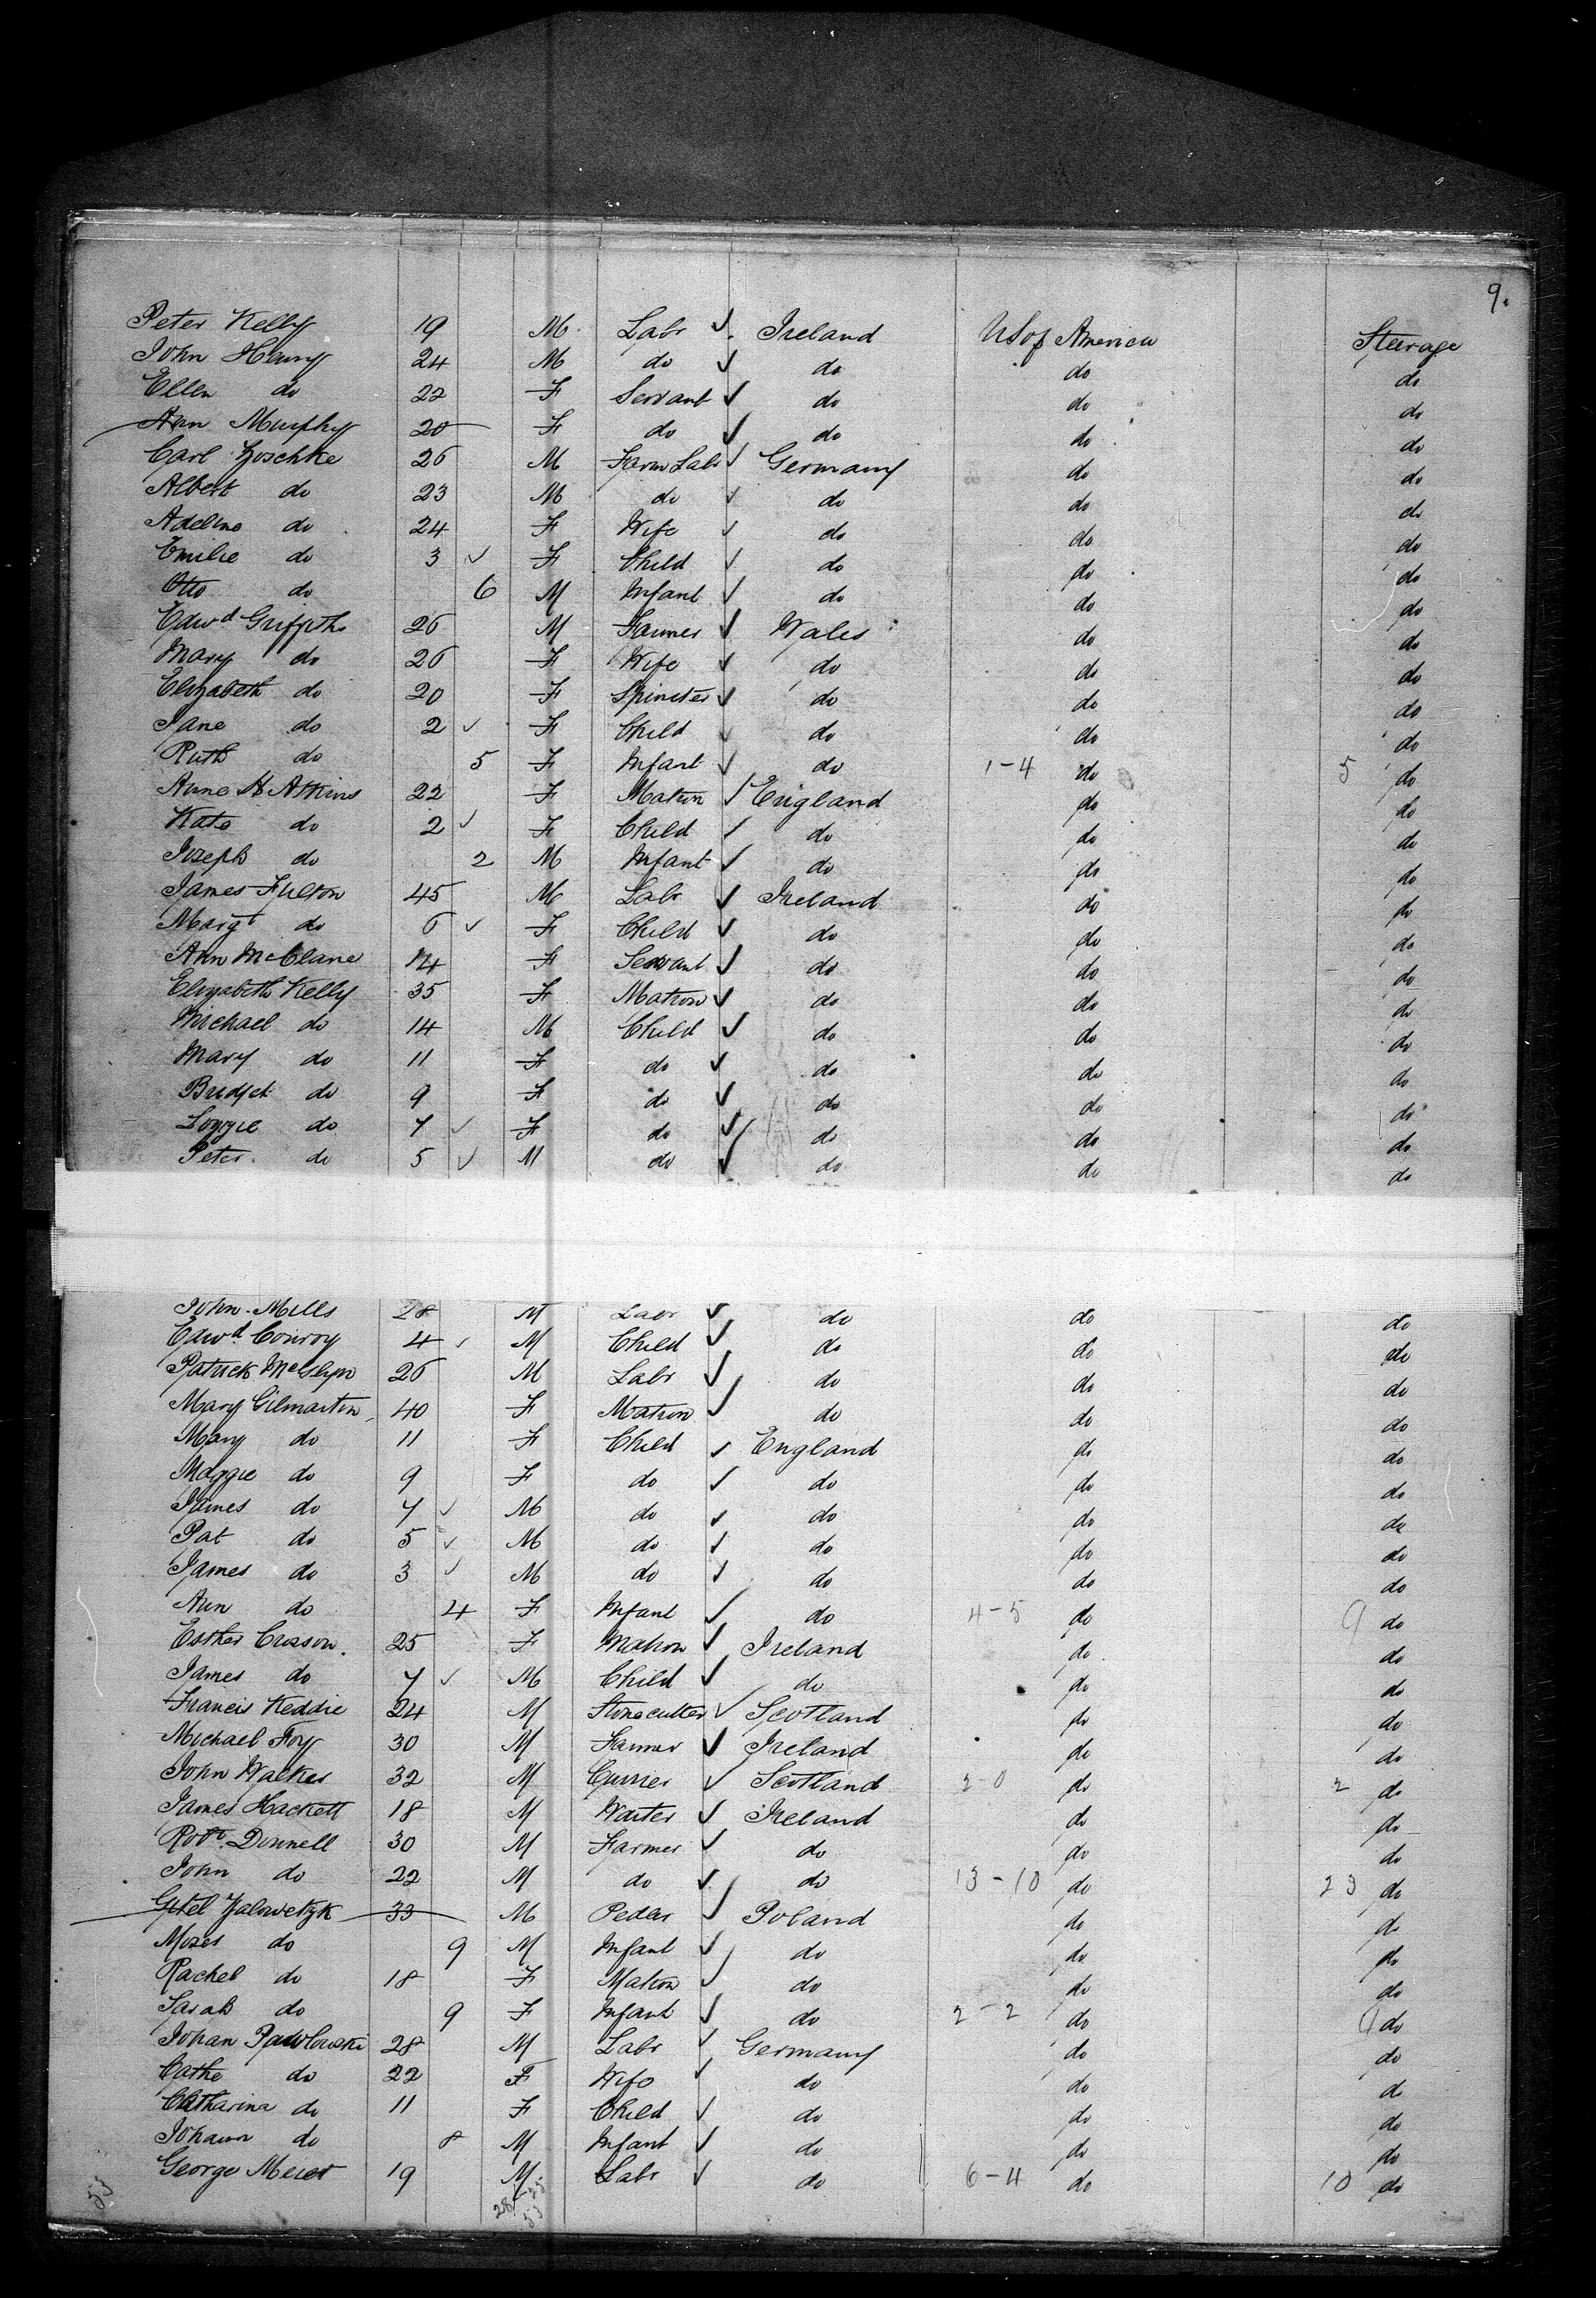 9.
Peter Kelly 19 M. Labr ✓ Ireland US of America Steerage
John Henry 24 M do ✓ do do do
Ellen do 22 F Servant ✓ do do do
Ann Murphy 20 F do ✓ do do do
Carl Zoschke 26 M Farm Labr ✓ Germany do do
Albert do 23 M do ✓ do do do
Adeline do 24 F Wife ✓ do do do
Emilie do 3 ✓ F Child ✓ do do do
Otto do 6 M Infant ✓ do do do
Edwd Griffiths 26 M Farmer ✓ Wales do do
Mary do 26 F Wife ✓ do do do
Elizabeth do 20 F Spinster ✓ do do do
Jane do 2 ✓ F Child ✓ do do do
Ruth do 5 F Infant ✓ do 1-4 do 5 do
Anne H Atkins 22 F Matron ✓ England do do
Kate do 2 ✓ F Child ✓ do do do
Joseph do 2 M Infant ✓ do do do
James Fulton 45 M Labr ✓ Ireland do do
Margt do 6 ✓ F Child ✓ do do do
Ann McClane 14 F Servant ✓ do do do
Elizabeth Kelly 35 F Matron ✓ do do do
Michael do 14 M Child ✓ do do do
Mary do 11 F do ✓ do do do
Bridget do 9 F do ✓ do do do
Lizzie do 7 ✓ F do ✓ do do do
Peter do 5 ✓ M do ✓ do do do
John Mills 28 M Labr ✓ do do do
Edwd Conroy 4 ✓ M Child ✓ do do do
Patrick 26 M Labr ✓ do do do
Mary Gilmartin 40 F Matron ✓ do do do
Mary do 11 F Child ✓ England do do
Maggie do 9 F do ✓ do do do
James do 7 ✓ M do ✓ do do do
Pat do 5 ✓ M do ✓ do do do
James do 3 ✓ M do ✓ do do do
Ann do 4 F Infant ✓ do 4-5 do 9 do
Esther Creason 25 F Matron ✓ Ireland do do
James do 7 ✓ M Child ✓ do do do
Francis Keddie 24 M Stonecutter ✓ Scotland do do
Michael Foy 30 M Farmer ✓ Ireland do do
John Walker 32 M Currier ✓ Scotland 2-0 do 2 do
James Hackett 18 M Waiter ✓ Ireland do do
Robt. Donnell 30 M Farmer ✓ do do do
John do 22 M do ✓ do 13-10 do 23 do
Gitel Jalowetzk 33 M Pedlar ✓ Poland do do
Mozes do 9 M Infant ✓ do do do
Rachel do 18 F Matron ✓ do do do
Sarah do 9 F Infant ✓ do 2-2 do 4 do
Johan Pawlowski 28 M Labr ✓ Germany do do
Cathe do 22 F Wife ✓ do do do
Catharina do 11 F Child ✓ do do do
Johann do 8 M Infant ✓ do do do
George Meier 19 M. Labr ✓ do 6-4 do 10 do
53 28-25
53